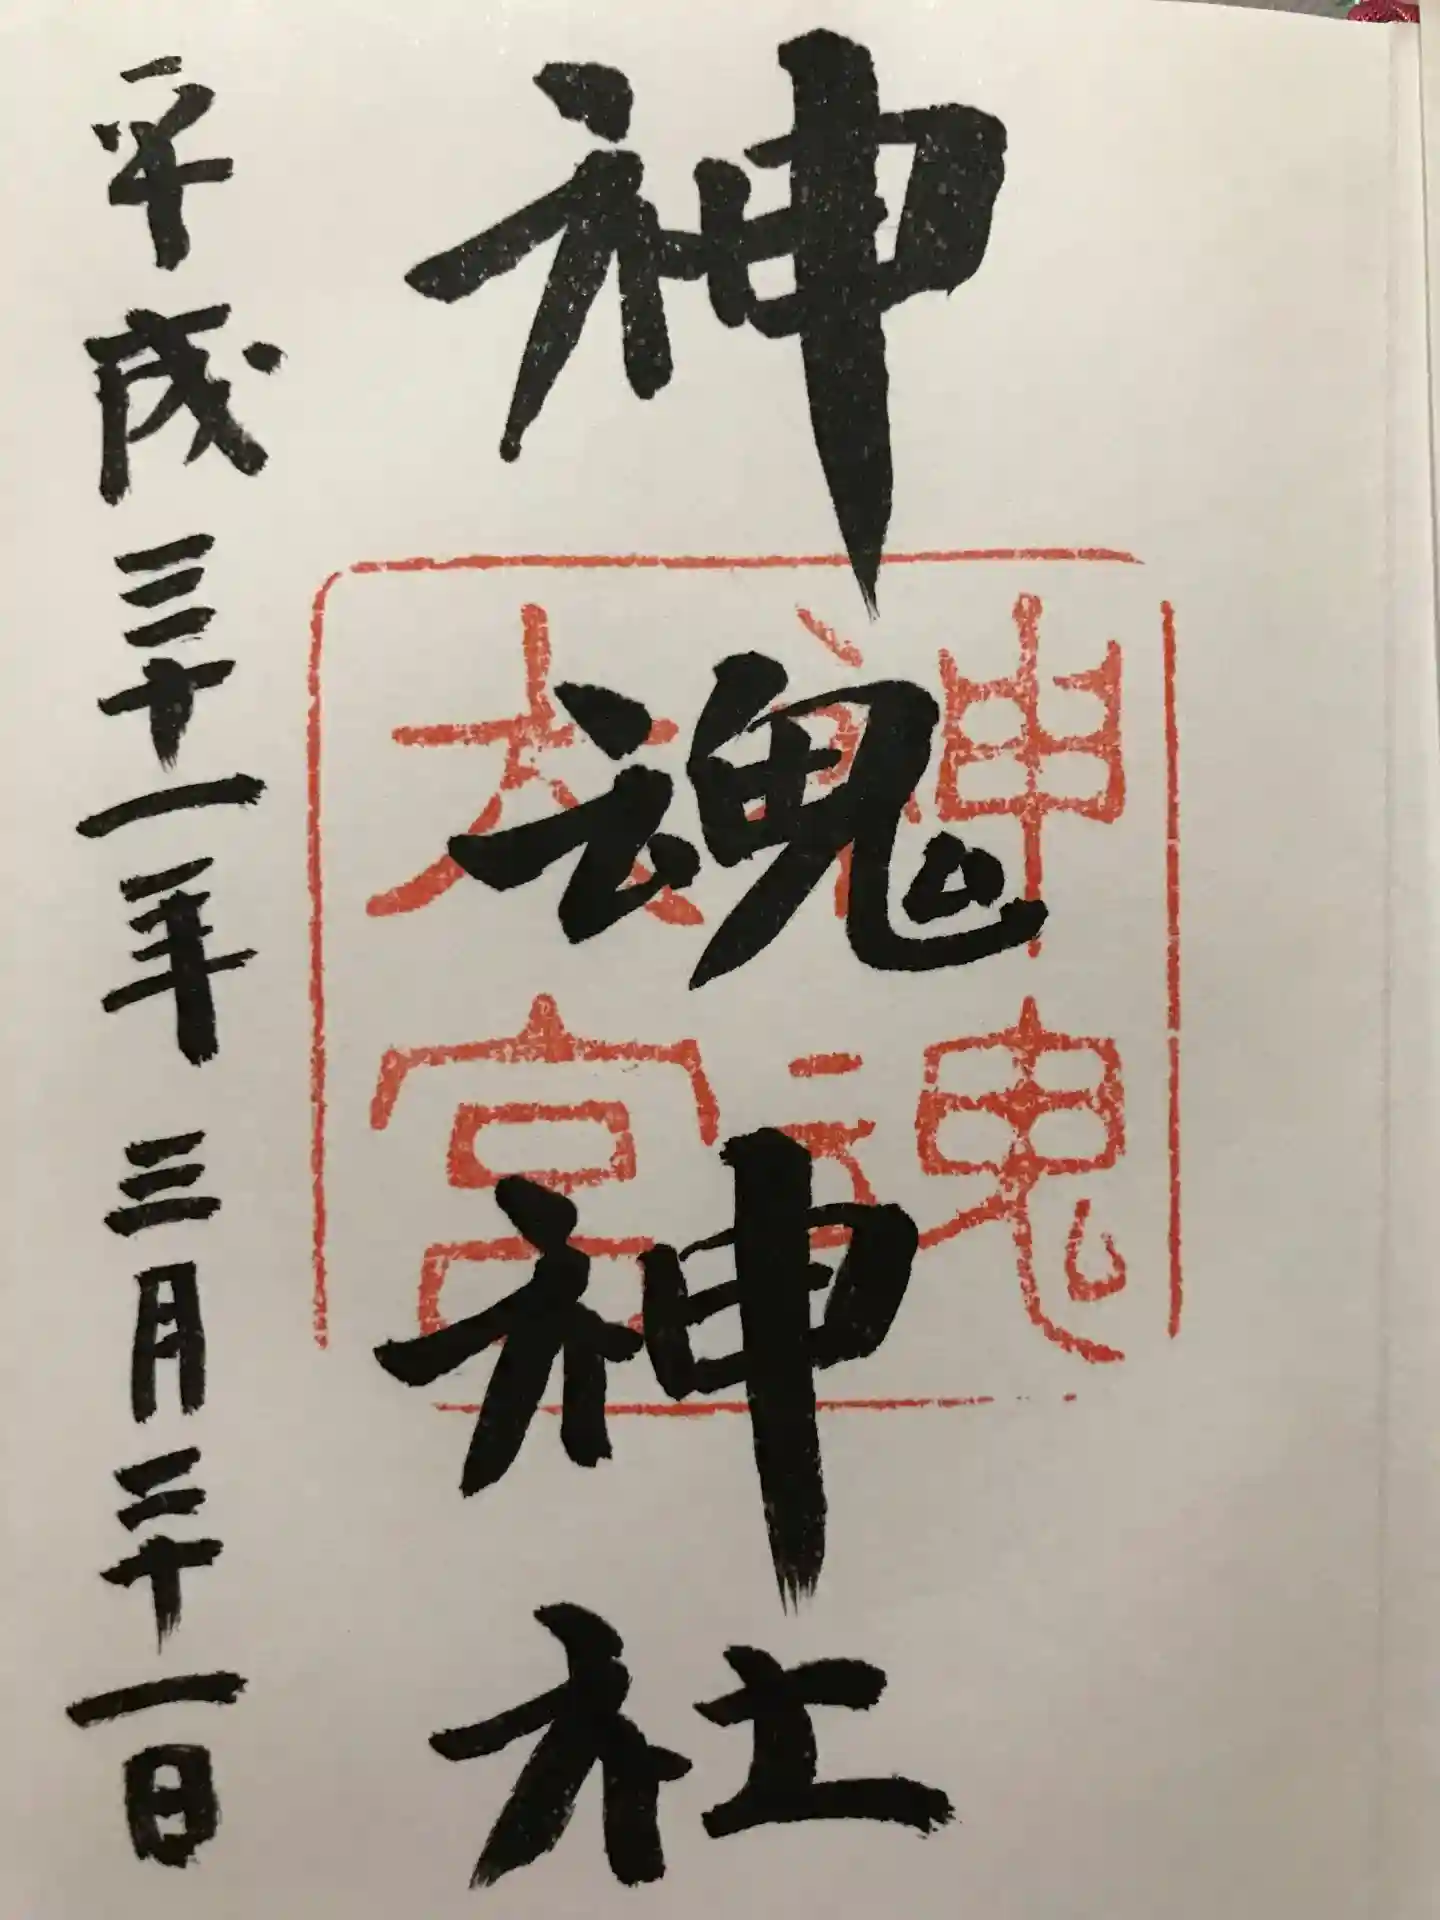 神魂神社
平成三十一年三月二十一日
神魂
大宮